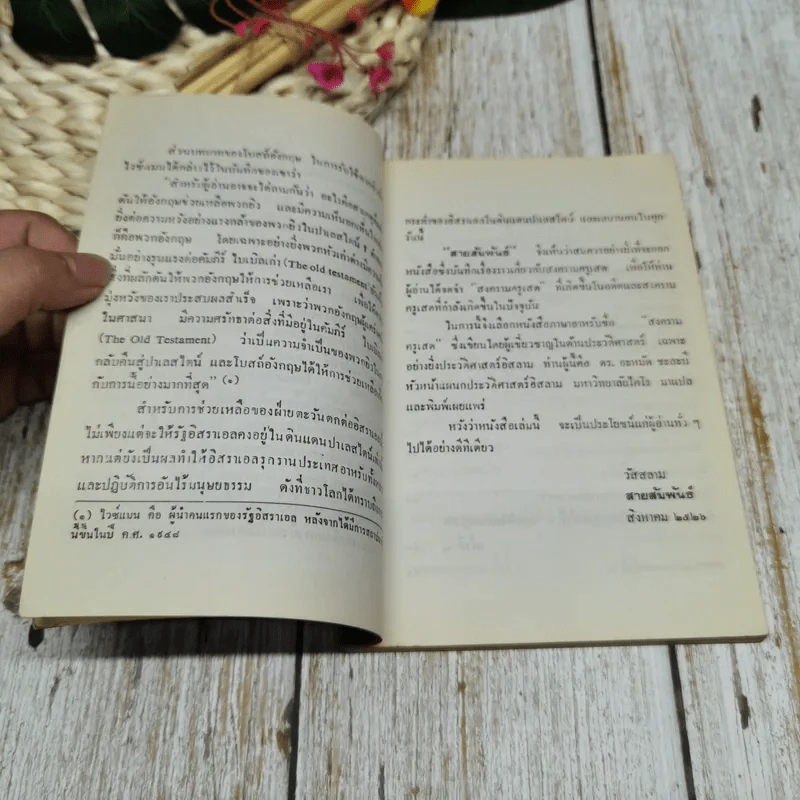 ส่วนบทบาทของโบสถ์อังกฤษ ในการรับใช้
ไวซ์แมนได้กล่าวไว้ในบันทึกของเขาว่า
"สำหรับผู้อ่านอาจจะได้ถามกันว่า อะไรคือสาเหตุ
ดันให้อังกฤษช่วยเหลือพวกยิว และมีความเห็นอกเห็นใจ
ยิ่งต่อความหวังอย่างแรงกล้าของพวกยิวในปาเลสไตน์ ?
ก็คือพวกอังกฤษ โดยเฉพาะอย่างยิ่งพวกหัวเก่า
มั่นอย่างรุนแรงต่อคัมภีร์ ไบเบิลเก่า (The old testament
สิ่งที่ผลักดันให้พวกอังกฤษให้การช่วยเหลือเรา เพื่อให้
มุ่งหวังของเราประสบผลสำเร็จ เพราะว่าพวกอังกฤษผู้
ในศาสนา มีความศรัทธาต่อสิ่งที่มีอยู่ในคัมภีร์ ไบเบิล
(The Old Testament) ว่าเป็นความจำเป็นของพวกยิว
กลับคืนสู่ปาเลสไตน์ และโบสถ์อังกฤษได้ให้การช่วยเหลือ
กับการนี้อย่างมากที่สุด" (๑)
สำหรับการช่วยเหลือของฝ่ายตะวันตกต่ออิสราเอล
ไม่เพียงแต่จะให้รัฐอิสราเอลคงอยู่ในดินแดนปาเลสไตน์
หากแต่ยังเป็นผลทำให้อิสราเอลรุกรานประเทศอาหรับทั้ง
และปฏิบัติการอันไร้มนุษยธรรม ดังที่ชาวโลกได้ทราบถึง
(๑) ไวซ์แมน คือ ผู้นำคนแรกของรัฐอิสราเอล หลังจากได้มีการ
นี้ขึ้นในปี ค.ศ. ๑๙๔๘
กระทำของอิสราเอลในดินแดนปาเลสไตน์ และเลบานอนในทุก
วันนี้
"สายสัมพันธ์" จึงเห็นว่าสมควรอย่างยิ่งที่จะออก
หนังสือซึ่งบันทึกเรื่องราวเกี่ยวกับสงครามครูเสด เพื่อให้ท่าน
ผู้อ่านได้จดจำ "สงครามครูเสด" ที่เกิดขึ้นในอดีตและสงคราม
ครูเสดที่กำลังเกิดขึ้นในปัจจุบัน
ในการนี้จึงเลือกหนังสือภาษาอาหรับชื่อ "สงคราม
ครูเสด" ซึ่งเขียนโดยผู้เชี่ยวชาญในด้านประวัติศาสตร์ เฉพาะ
อย่างยิ่งประวัติศาสตร์อิสลาม ท่านผู้นี้คือ ดร. อะหมัด ชะละบี
หัวหน้าแผนกประวัติศาสตร์อิสลาม มหาวิทยาลัยไคโร มาแปล
และพิมพ์เผยแพร่
หวังว่าหนังสือเล่มนี้ จะเป็นประโยชน์แก่ผู้อ่านทั่ว ๆ
ไปได้อย่างดีทีเดียว
วัสสลาม
สายสัมพันธ์
สิงหาคม ๒๕๒๖